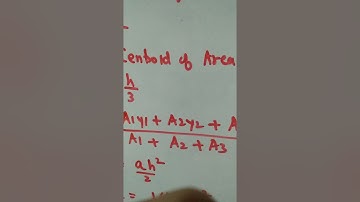 Centroid of Area
h/3
A1y1 + A2y2 + A
A1 + A2 + A3
ah²/2
=